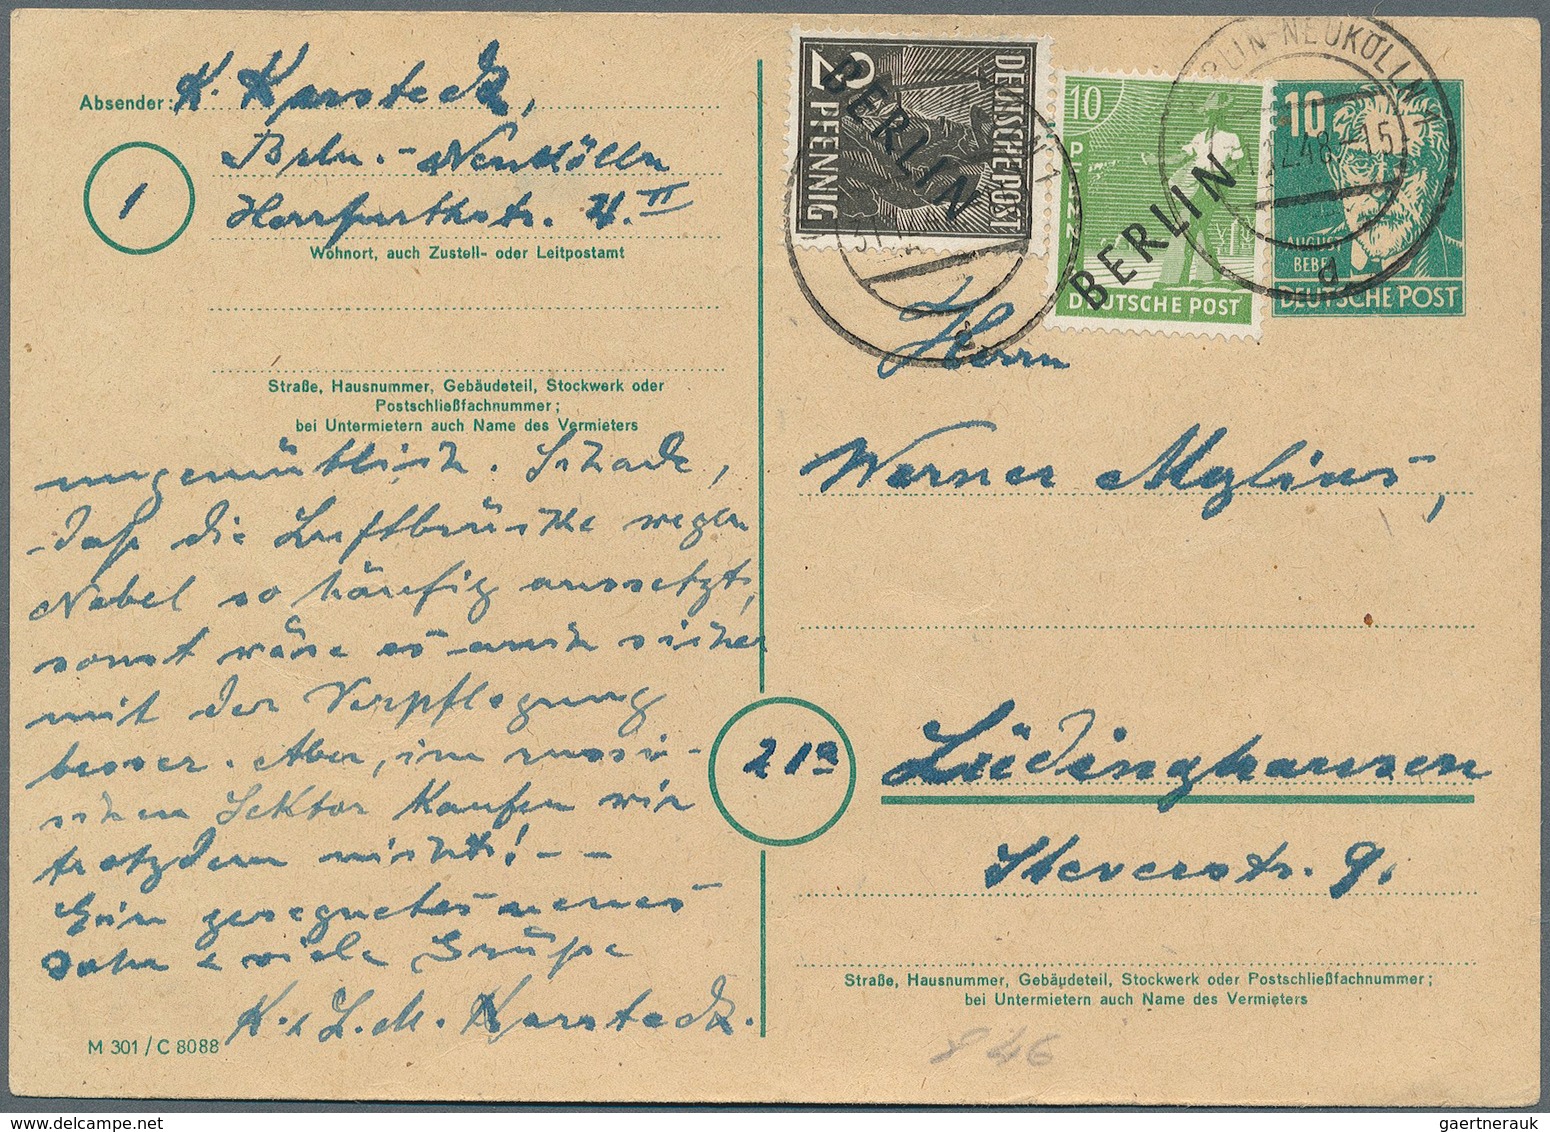 Absender: K. Karsteck,
1
Berlin.-Neukölln
Herrfurthstr. 4.II
Wohnort, auch Zustell- oder Leitpostamt
Straße, Hausnummer, Gebäudeteil, Stockwerk oder
Postschließfachnummer;
bei Untermietern auch Name des Vermieters
ungemütlich. Schade,
daß die Luftbrücke wegen
Nebel so häufig aussetzt,
sonst wäre es auch sicher
mit der Verpflegung
besser. Aber, im russi-
schen Sektor kaufen wir
trotzdem nichts! - -
Ein gesegnetes neues
Jahr & viele Grüße
K. & L. M. Karsteck.
M 301 / C 8088
2 PFENNIG
DEUTSCHE POST
BERLIN
10
PFENNIG
DEUTSCHE POST
BERLIN
10
AUGUST
BEBEL
DEUTSCHE POST
BERLIN-NEUKÖLLN 1
d
Herrn
Werner Mylius,
21a
Lüdinghausen
Steverstr. 9.
Straße, Hausnummer, Gebäudeteil, Stockwerk oder Postschließfachnummer;
bei Untermietern auch Name des Vermieters
846
gaertnerauk